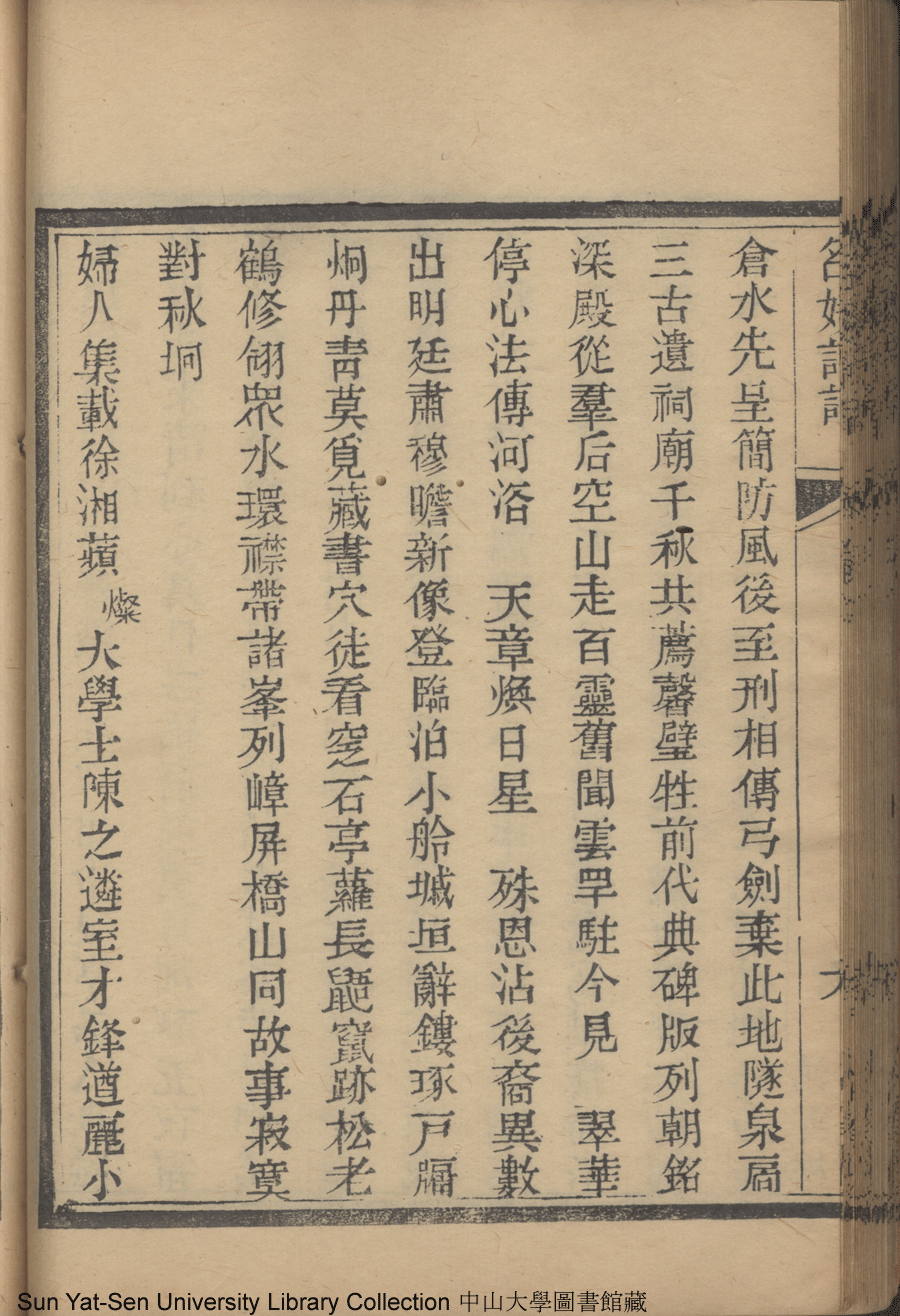 倉水先呈簡防風後至刑相傳弓劍棄此地隧泉扃
三古遺祠廟千秋共薦馨璧牲前代典碑版列朝銘
深殿從羣后空山走百靈舊聞雲罕駐今見 翠華
停心法傳河洛 天章煥日星 殊恩沾後裔異數
出明廷肅穆瞻新像登臨泊小舲堿垣辭鏤琢戸牖
炯丹靑莫覓藏書穴徒看窆石亭蘿長鼯竄跡松老
鶴修翎衆水環襟帶諸峯列嶂屏橋山同故事寂寞
對秋坰
婦人集載徐湘蘋燦大學士陳之遴室才鋒遒麗小
Sun Yat-Sen University Library Collection 中山大學圖書館藏